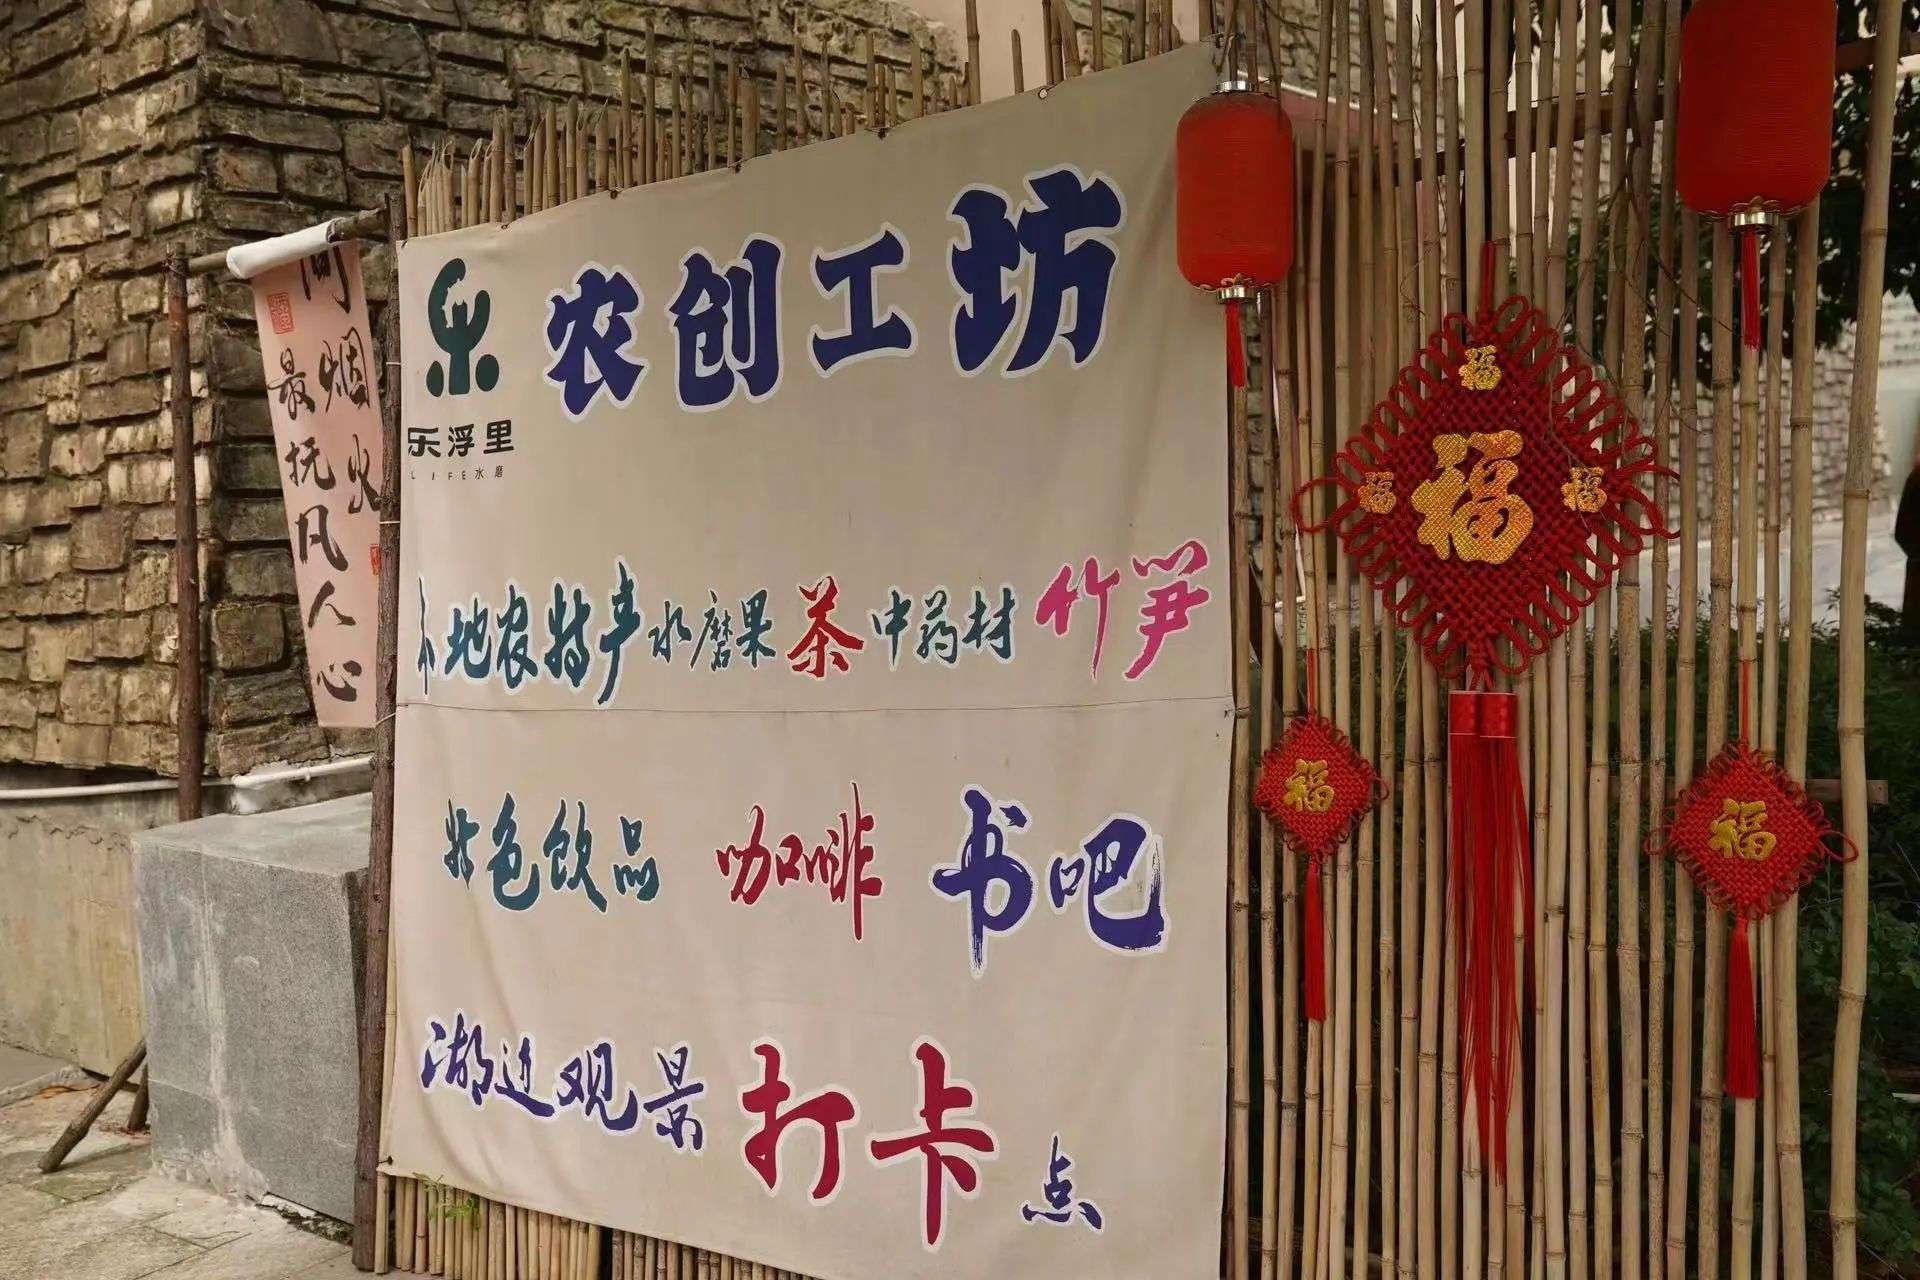 间烟火
最抚凡人心
乐浮里
LIFE水磨
农创工坊
本地农特产 水磨果 茶 中药材 竹笋
特色饮品 咖啡 书吧
湖边观景 打卡 点
福
福
福
福
福
福